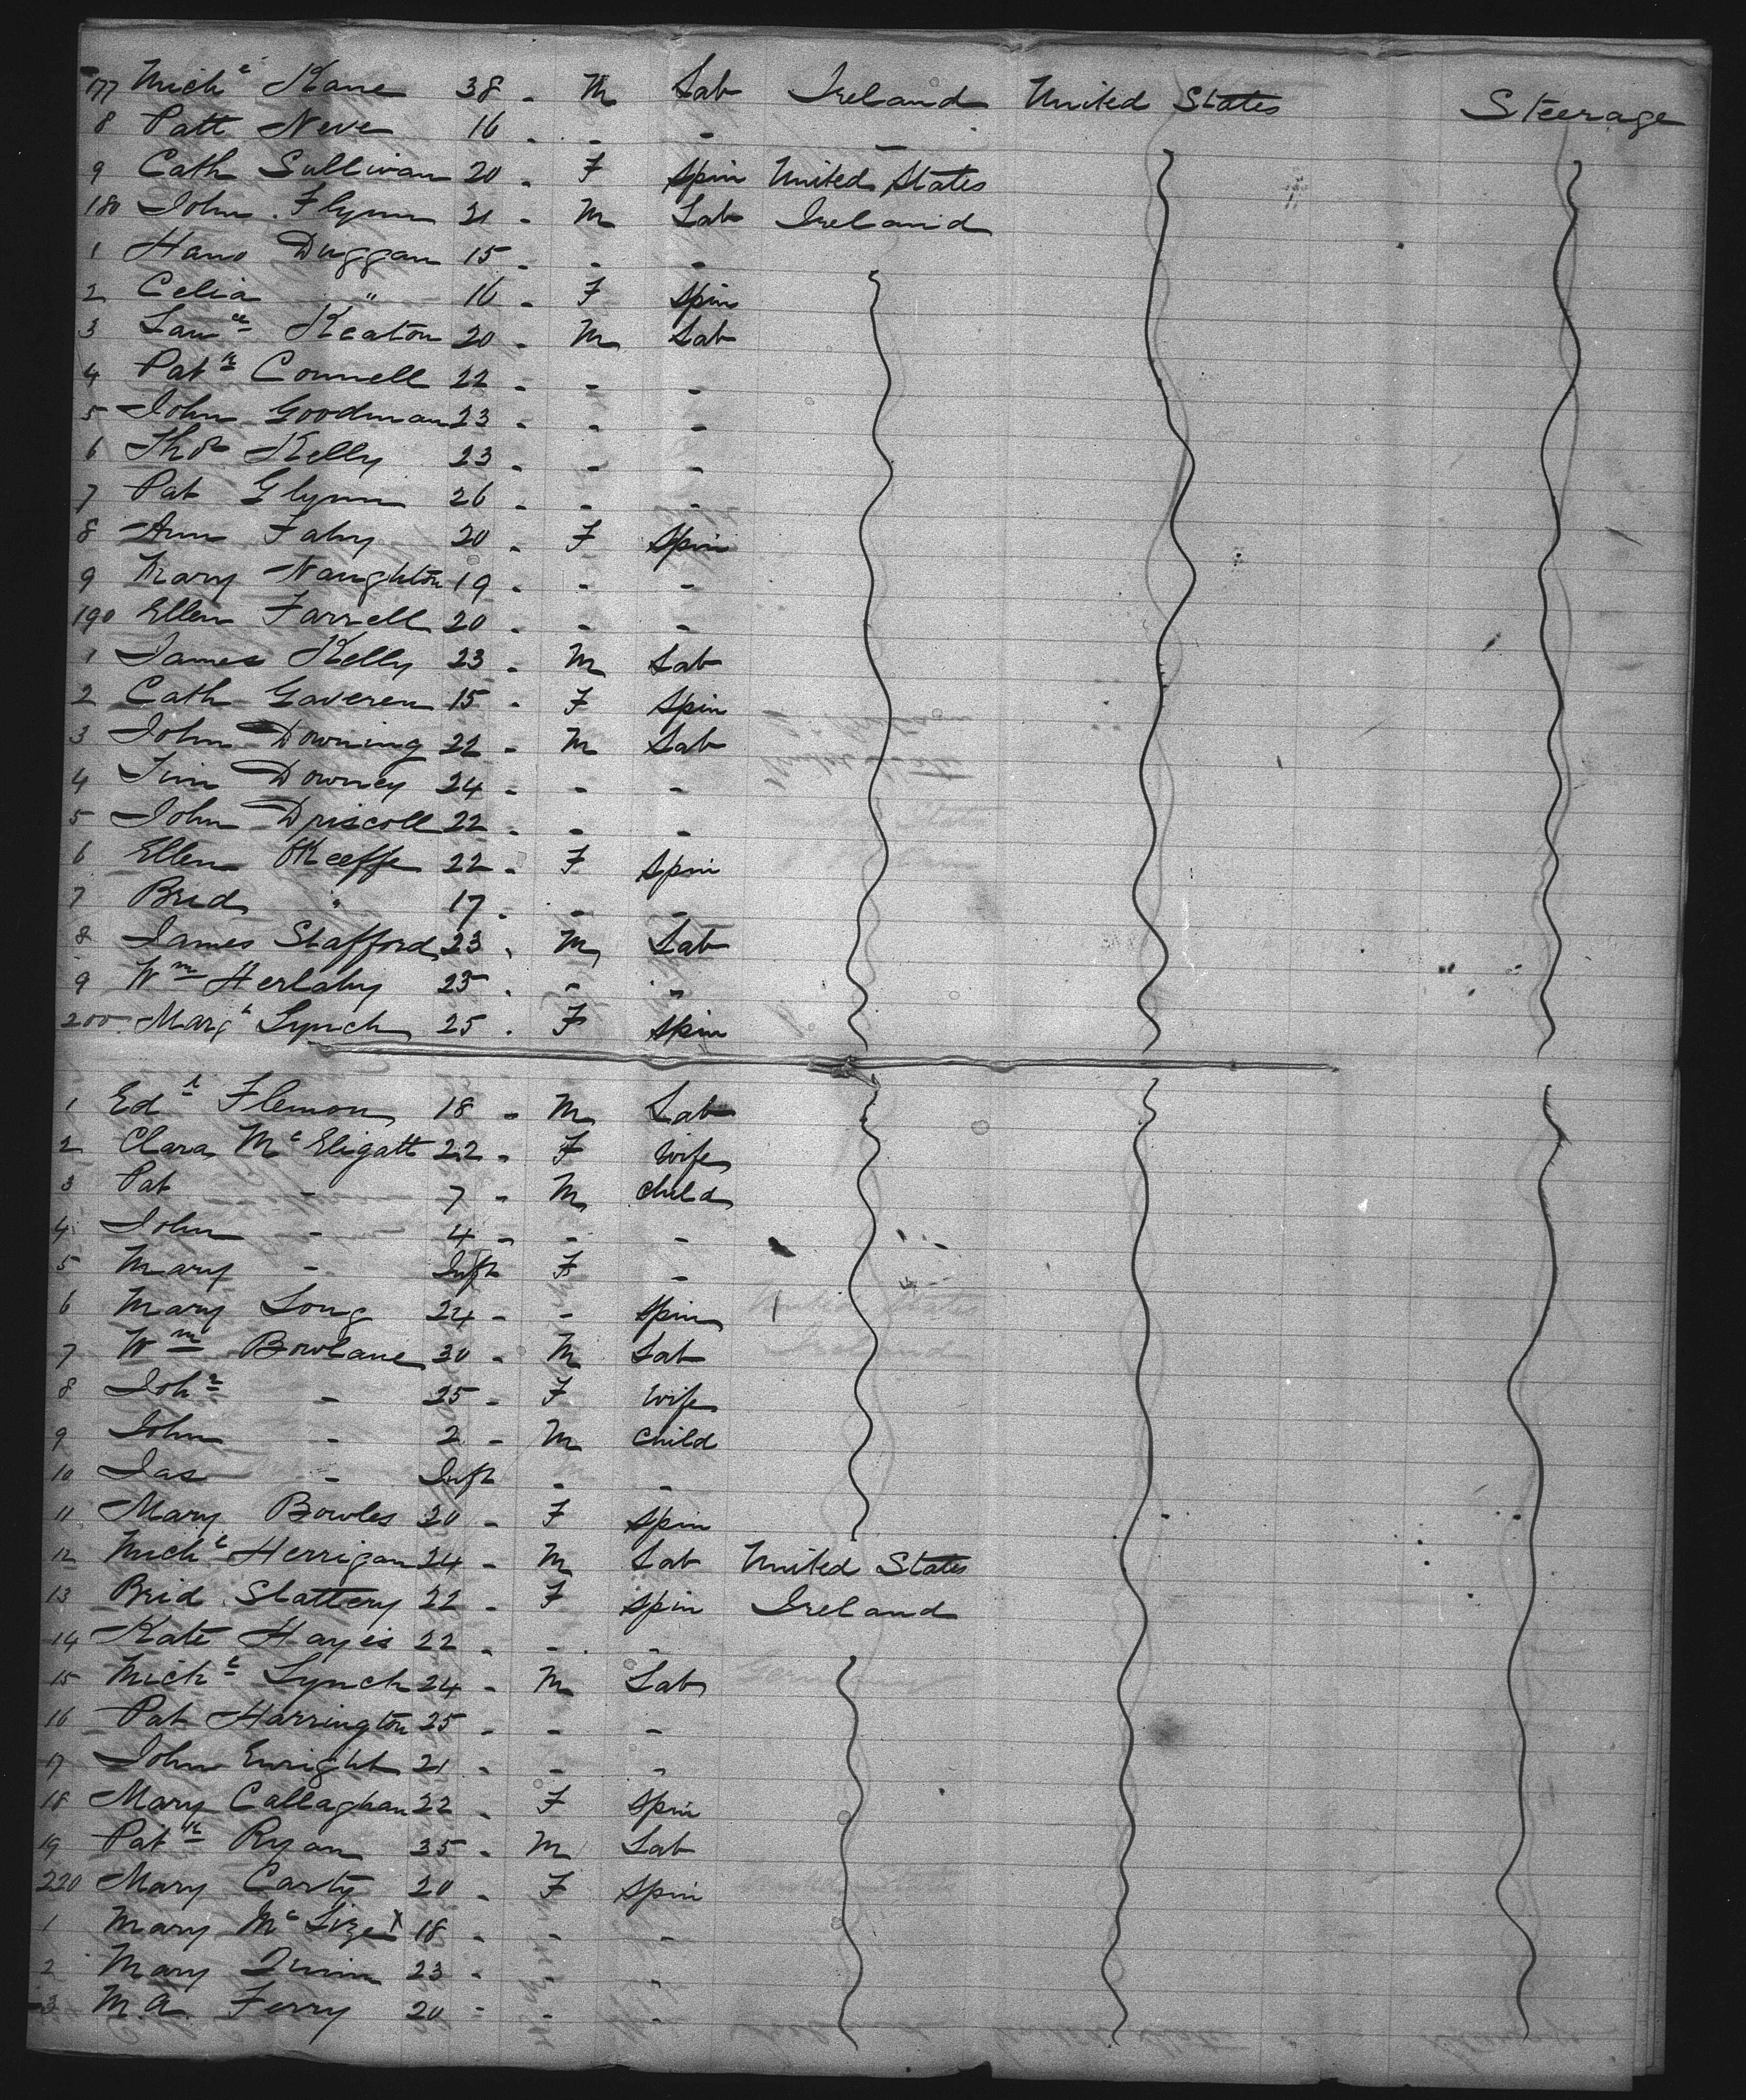 177 Mich<sup>l</sup> Kane 38 - M Lab Ireland United States Steerage
8 Patt Neve 16 - - - -
9 Cath Sullivan 20 - F Spin United States
180 John Flynn 21 - M Lab Ireland
1 Hano Duggan 15 - - -
2 Celia " 16 - F Spin
3 Law<sup>ce</sup> Keaton 20 - M Lab
4 Pat<sup>k</sup> Connell 22 - - -
5 John Goodman 23 - - -
6 Tho<sup>s</sup> Kelly 23 - - -
7 Pat Glynn 26 - - -
8 Ann Fahy 20 - F Spin
9 Mary Naughton 19 - - -
190 Ellen Farrell 20 - - -
1 James Kelly 23 - M Lab
2 Cath Gaveren 15 - F Spin
3 John Downing 22 - M Lab
4 Tim Downey 24 - - -
5 John Driscoll 22 - - -
6 Ellen OKeeffe 22 - F Spin
7 Brid " 17 - - -
8 James Stafford 23 - M Lab
9 W<sup>m</sup> Herlahy 25 - - -
200 Marg<sup>t</sup> Lynch 25 - F Spin
1 Ed<sup>d</sup> Flemon 18 - M Lab
2 Clara M<sup>c</sup>Eligatt 22 - F Wife
3 Pat - 7 - M Child
4 John - 4 - - -
5 Mary - Inft F -
6 Mary Long 24 - - Spin
7 W<sup>m</sup> Bowlane 30 - M Lab
8 Joh<sup>a</sup> - 25 - F Wife
9 John - 2 - M Child
10 Jas - Inft - -
11 Mary Bowles 20 - F Spin
12 Mich<sup>l</sup> Herrigan 24 - M Lab United States
13 Brid Slattery 22 - F Spin Ireland
14 Kate Hayes 22 - - -
15 Mich<sup>l</sup> Lynch 24 - M Lab
16 Pat Harrington 25 - - -
17 John Enright 21 - - -
18 Mary Callaghan 22 - F Spin
19 Pat<sup>k</sup> Ryan 35 - M Lab
220 Mary Carty 20 - F Spin
1 Mary M<sup>c</sup> X 18 - - -
2 Mary Quinn 23 - - -
3 M.A. Ferry 20 - - -